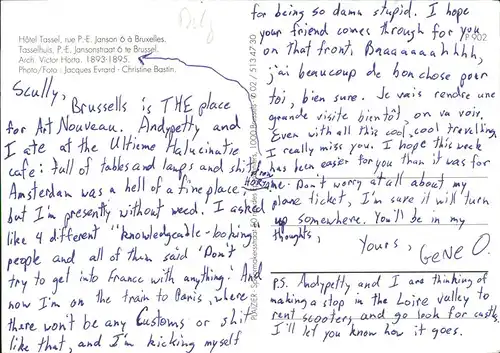 Hôtel Tassel, rue P.-E. Janson 6 à Bruxelles.
Tasselhuis, P.-E. Jansonstraat 6 te Brussel.
Arch. Victor Horta. 1893-1895.
Photo/Foto : Jacques Evrard - Christine Bastin.
Scully,
Brussells is THE place
for Art Nouveau. Andypetty and
I ate at the Ultieme Halucinatie
cafe: full of tables and lamps and shit from
HORTA
Amsterdam was a hell of a fine place
but I'm presently without weed. I asked
like 4 different "knowledgeable-looking"
people and all of them said 'Don't
try to get into France with anything.' And
now I'm on the train to Paris, where
there won't be any Customs or shit
like that, and I'm kicking myself
for being so damn stupid. I hope
your friend comes through for you
on that front. Baaaaaahhhh,
j'ai beaucoup de bon chose pour
toi, bien sure. Je vais rendre une
grande visite bientôt, on va voir.
Even with all this cool, cool travelling,
I really miss you. I hope this week
has been easier for you than it was for
me. Don't worry at all about my
plane ticket, I'm sure it will turn
up somewhere. You'll be in my
thoughts,
Yours,
GENE O.
P.S. Andypetty and I are thinking of
making a stop in the Loire valley to
rent scooters and go look for castles.
I'll let you know how it goes.
P 902